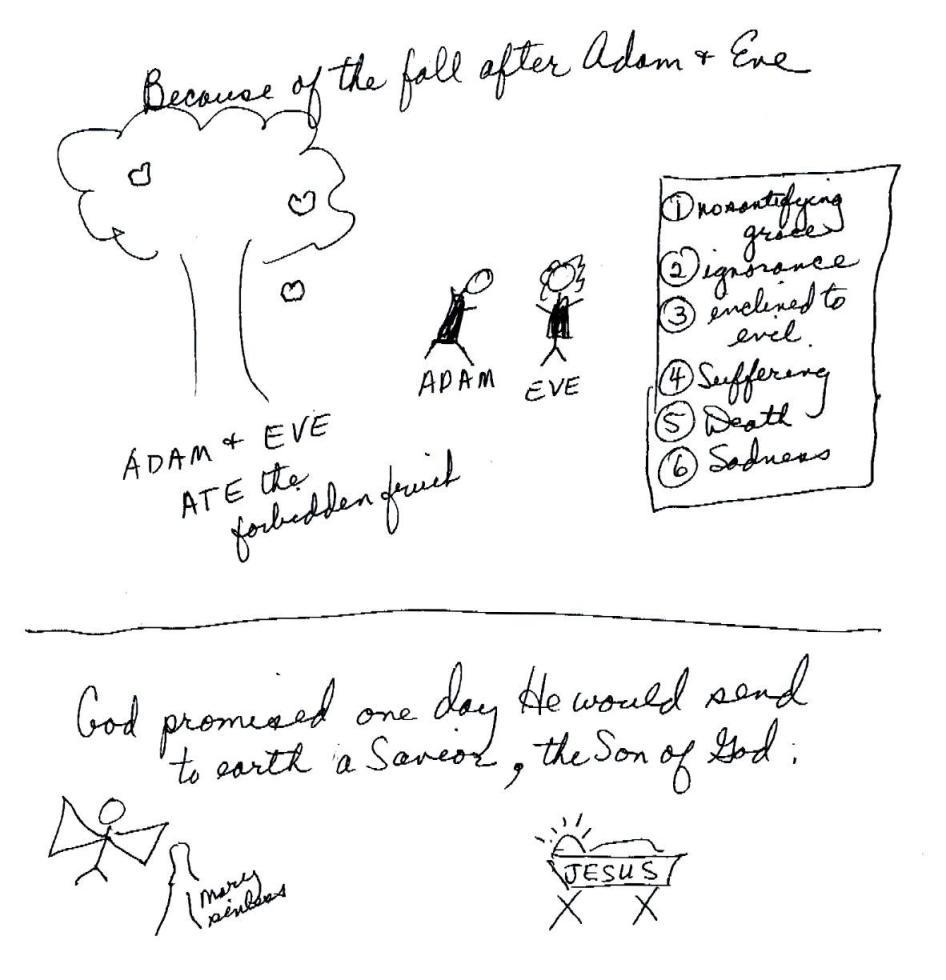 Because of the fall after Adam + Eve
① no santifying
grace
② ignorance
③ enclined to
evil.
④ Suffering
⑤ Death
⑥ Sadness
ADAM
EVE
ADAM + EVE
ATE the
forbidden fruit
God promised one day He would send
to earth a Savior, the Son of God.
Mary
sinless
JESUS